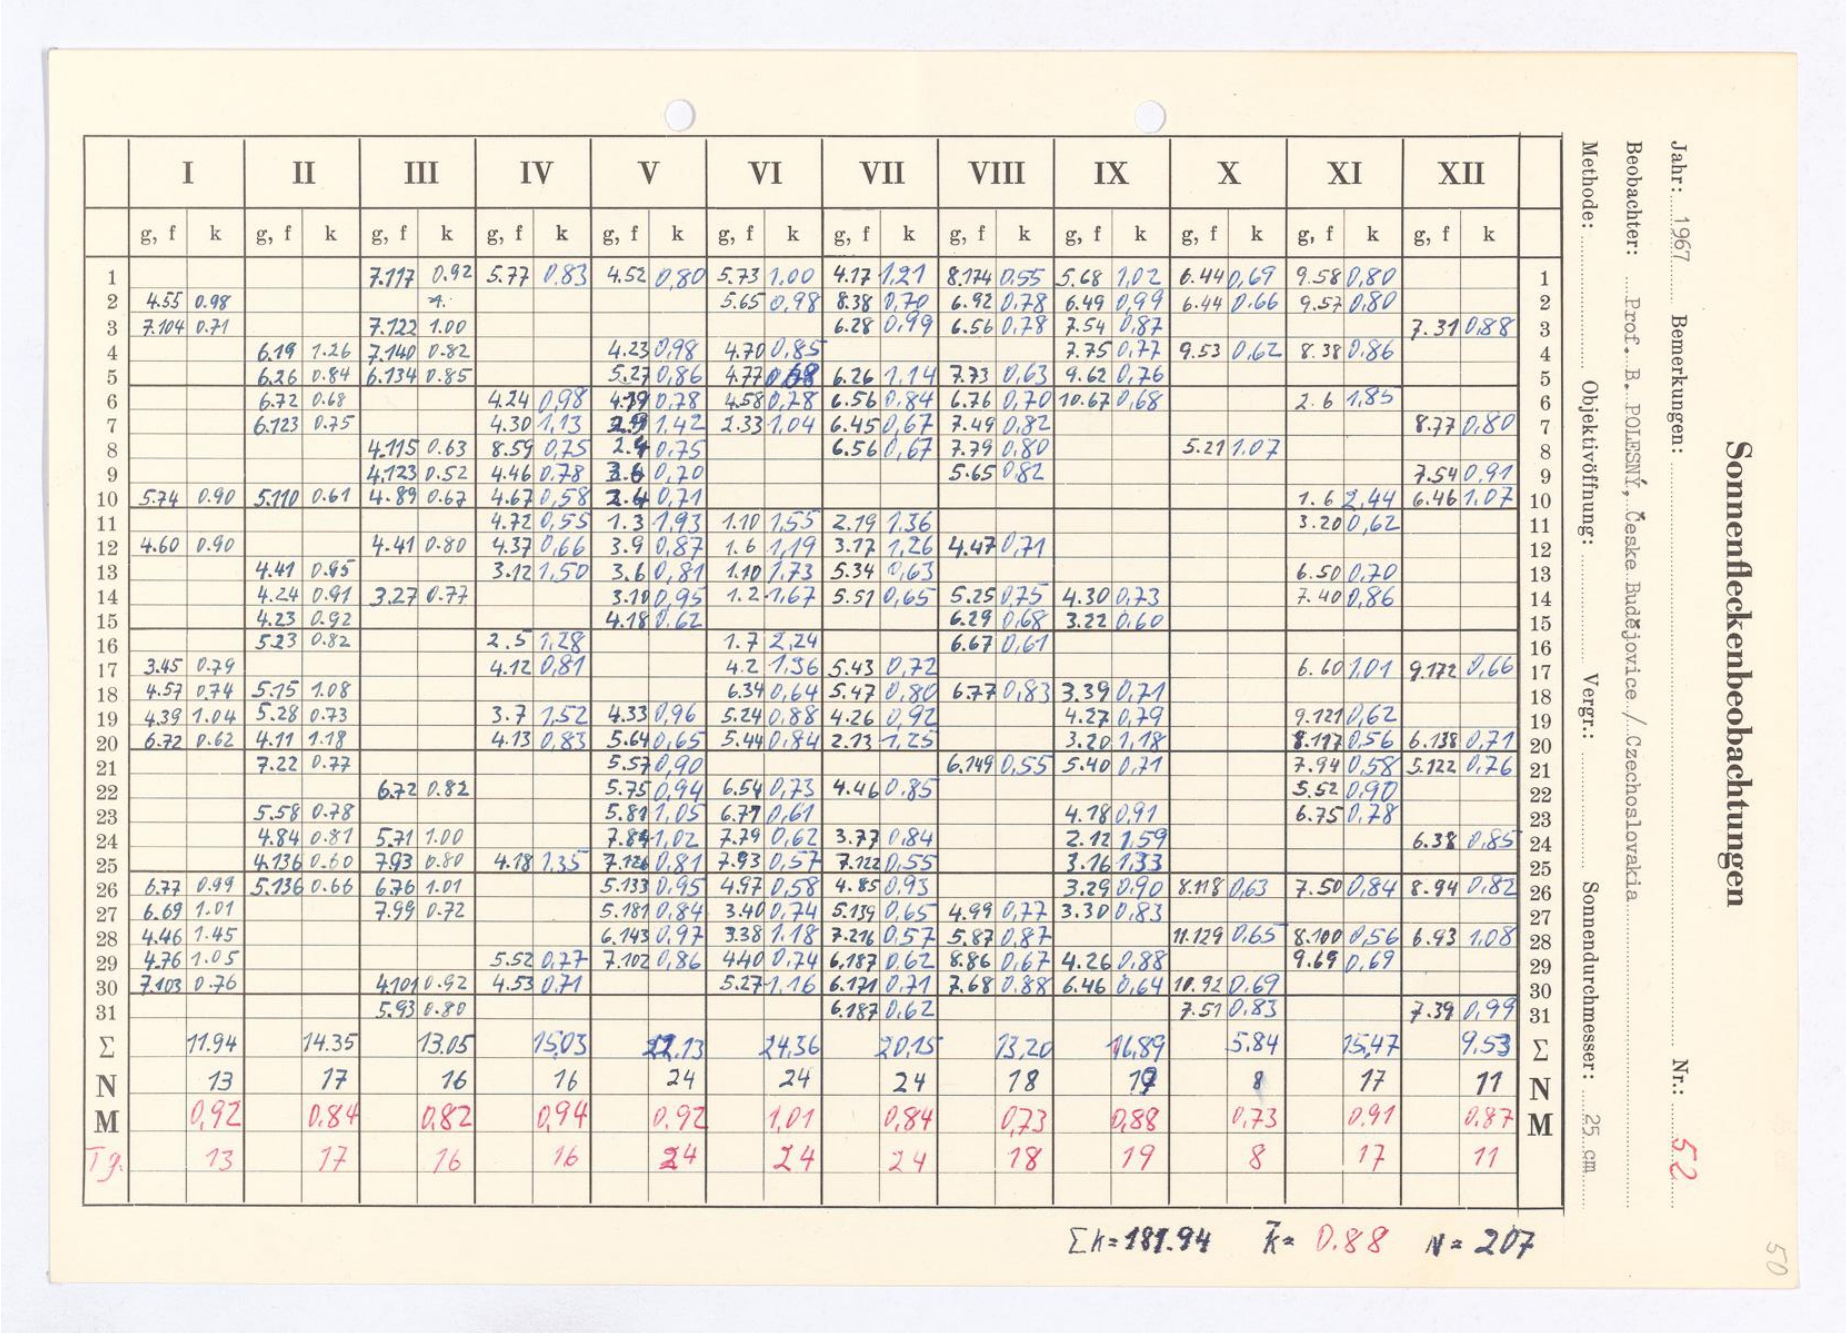 I II III IV V VI VII VIII IX X XI XII
g, f k g, f k g, f k g, f k g, f k g, f k g, f k g, f k g, f k g, f k g, f k g, f k
1 7.117 0.92 5.77 0,83 4.52 0,80 5.73 1.00 4.17 1,21 8.174 0,55 5.68 1,02 6.44 0,69 9.58 0,80 1
2 4.55 0.98 5.65 0,98 8.38 0,70 6.92 0,78 6.49 0,99 6.44 0.66 9.57 0,80 2
3 7.104 0.71 7.122 1.00 6.28 0,99 6.56 0,78 7.54 0,87 7.31 0,88 3
4 6.19 1.26 7.140 0.82 4.23 0,98 4.70 0,85 7.75 0,77 9.53 0,62 8.38 0,86 4
5 6.26 0.84 6.134 0.85 5.27 0,86 4.77 0,68 6.26 1,14 7.73 0,63 9.62 0,76 5
6 6.72 0.68 4.24 0,98 4.19 0,78 4.58 0,78 6.56 0,84 6.76 0,70 10.67 0,68 2.6 1,85 6
7 6.123 0.75 4.30 1,13 2.9 1,42 2.33 1,04 6.45 0,67 7.49 0,82 8.77 0,80 7
8 4.115 0.63 8.59 0,75 2.4 0,75 6.56 0,67 7.79 0,80 5.21 1.07 8
9 4.123 0.52 4.46 0,78 3.6 0,70 5.65 0,82 7.54 0,91 9
10 5.74 0.90 5.110 0.61 4.89 0.67 4.67 0,58 2.4 0,71 1.6 2,44 6.46 1,07 10
11 4.72 0,55 1.3 1,93 1.10 1,55 2.19 1,36 3.20 0,62 11
12 4.60 0.90 4.41 0.80 4.37 0,66 3.9 0,87 1.6 1,19 3.17 1,26 4.47 0,71 12
13 4.41 0.95 3.12 1,50 3.6 0,81 1.10 1,73 5.34 0,63 6.50 0,70 13
14 4.24 0.91 3.27 0.77 3.10 0,95 1.2 1,67 5.51 0,65 5.25 0,75 4.30 0,73 7.40 0,86 14
15 4.23 0.92 4.18 0,62 6.29 0,68 3.22 0,60 15
16 5.23 0.82 2.5 1,28 1.7 2,24 6.67 0,61 16
17 3.45 0.79 4.12 0,81 4.2 1,36 5.43 0,72 6.60 1,01 9.172 0,66 17
18 4.57 0.74 5.15 1.08 6.34 0,64 5.47 0,80 6.77 0,83 3.39 0,71 18
19 4.39 1.04 5.28 0.73 3.7 1,52 4.33 0,96 5.24 0,88 4.26 0,92 4.27 0,79 9.121 0,62 19
20 6.72 0.62 4.11 1.18 4.13 0,83 5.64 0,65 5.44 0,84 2.13 1,25 3.20 1,18 8.117 0,56 6.138 0,71 20
21 7.22 0.77 5.57 0,90 6.149 0,55 5.40 0,71 7.94 0,58 5.122 0,76 21
22 6.72 0.82 5.75 0,94 6.54 0,73 4.46 0.85 5.52 0,90 22
23 5.58 0.78 5.81 1,05 6.77 0,61 4.18 0,91 6.75 0,78 23
24 4.84 0.81 5.71 1.00 7.84 1,02 7.79 0,62 3.77 0,84 2.12 1,59 6.38 0,85 24
25 4.136 0.60 7.93 0.80 4.18 1,35 7.126 0,81 7.93 0,57 7.122 0,55 3.16 1,33 25
26 6.77 0.99 5.136 0.66 6.76 1.01 5.133 0,95 4.97 0,58 4.85 0,93 3.29 0,90 8.118 0,63 7.50 0,84 8.94 0,82 26
27 6.69 1.01 7.99 0.72 5.181 0,84 3.40 0,74 5.139 0,65 4.99 0,77 3.30 0,83 27
28 4.46 1.45 6.143 0,97 3.38 1,18 7.216 0,57 5.87 0,87 11.129 0,65 8.100 0,56 6.93 1,08 28
29 4.76 1.05 5.52 0,77 7.102 0,86 4.40 0,74 6.187 0,62 8.86 0,67 4.26 0,88 9.69 0,69 29
30 7.103 0.76 4.101 0.92 4.53 0,71 5.27 1,16 6.171 0,71 7.68 0.88 6.46 0,64 10.92 0,69 30
31 5.93 0.80 6.187 0,62 7.51 0,83 7.39 0,99 31
Σ 11.94 14.35 13.05 15,03 22,13 24,36 20,15 13,20 16,89 5.84 15,47 9,53 Σ
N 13 17 16 16 24 24 24 18 19 8 17 11 N
M 0,92 0,84 0,82 0,94 0,92 1,01 0,84 0,73 0,88 0,73 0,91 0,87 M
Tg. 13 17 16 16 24 24 24 18 19 8 17 11
Σk=181.94 k̄= 0.88 N = 207
Sonnenfleckenbeobachtungen
Jahr: 1967 Bemerkungen: Nr.: 52
Beobachter: Prof. B. POLESNÝ, České Budějovice / Czechoslovakia
Methode: Objektivöffnung: Vergr.: Sonnendurchmesser: 25 cm
50